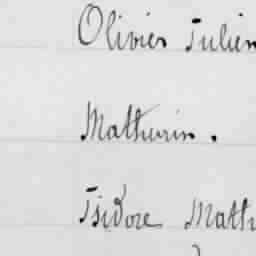 Olivier Julien
Mathurin.
Isidore Math